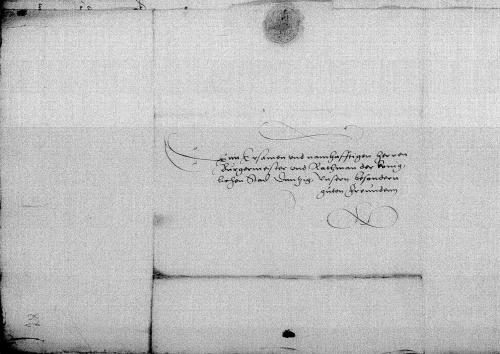 Den Ersamen vnd namhafftigen Herren
Burgermeister vnd Rathman der König,
lichen Stad Dantzig, Vnsern besondern
guten Freunden